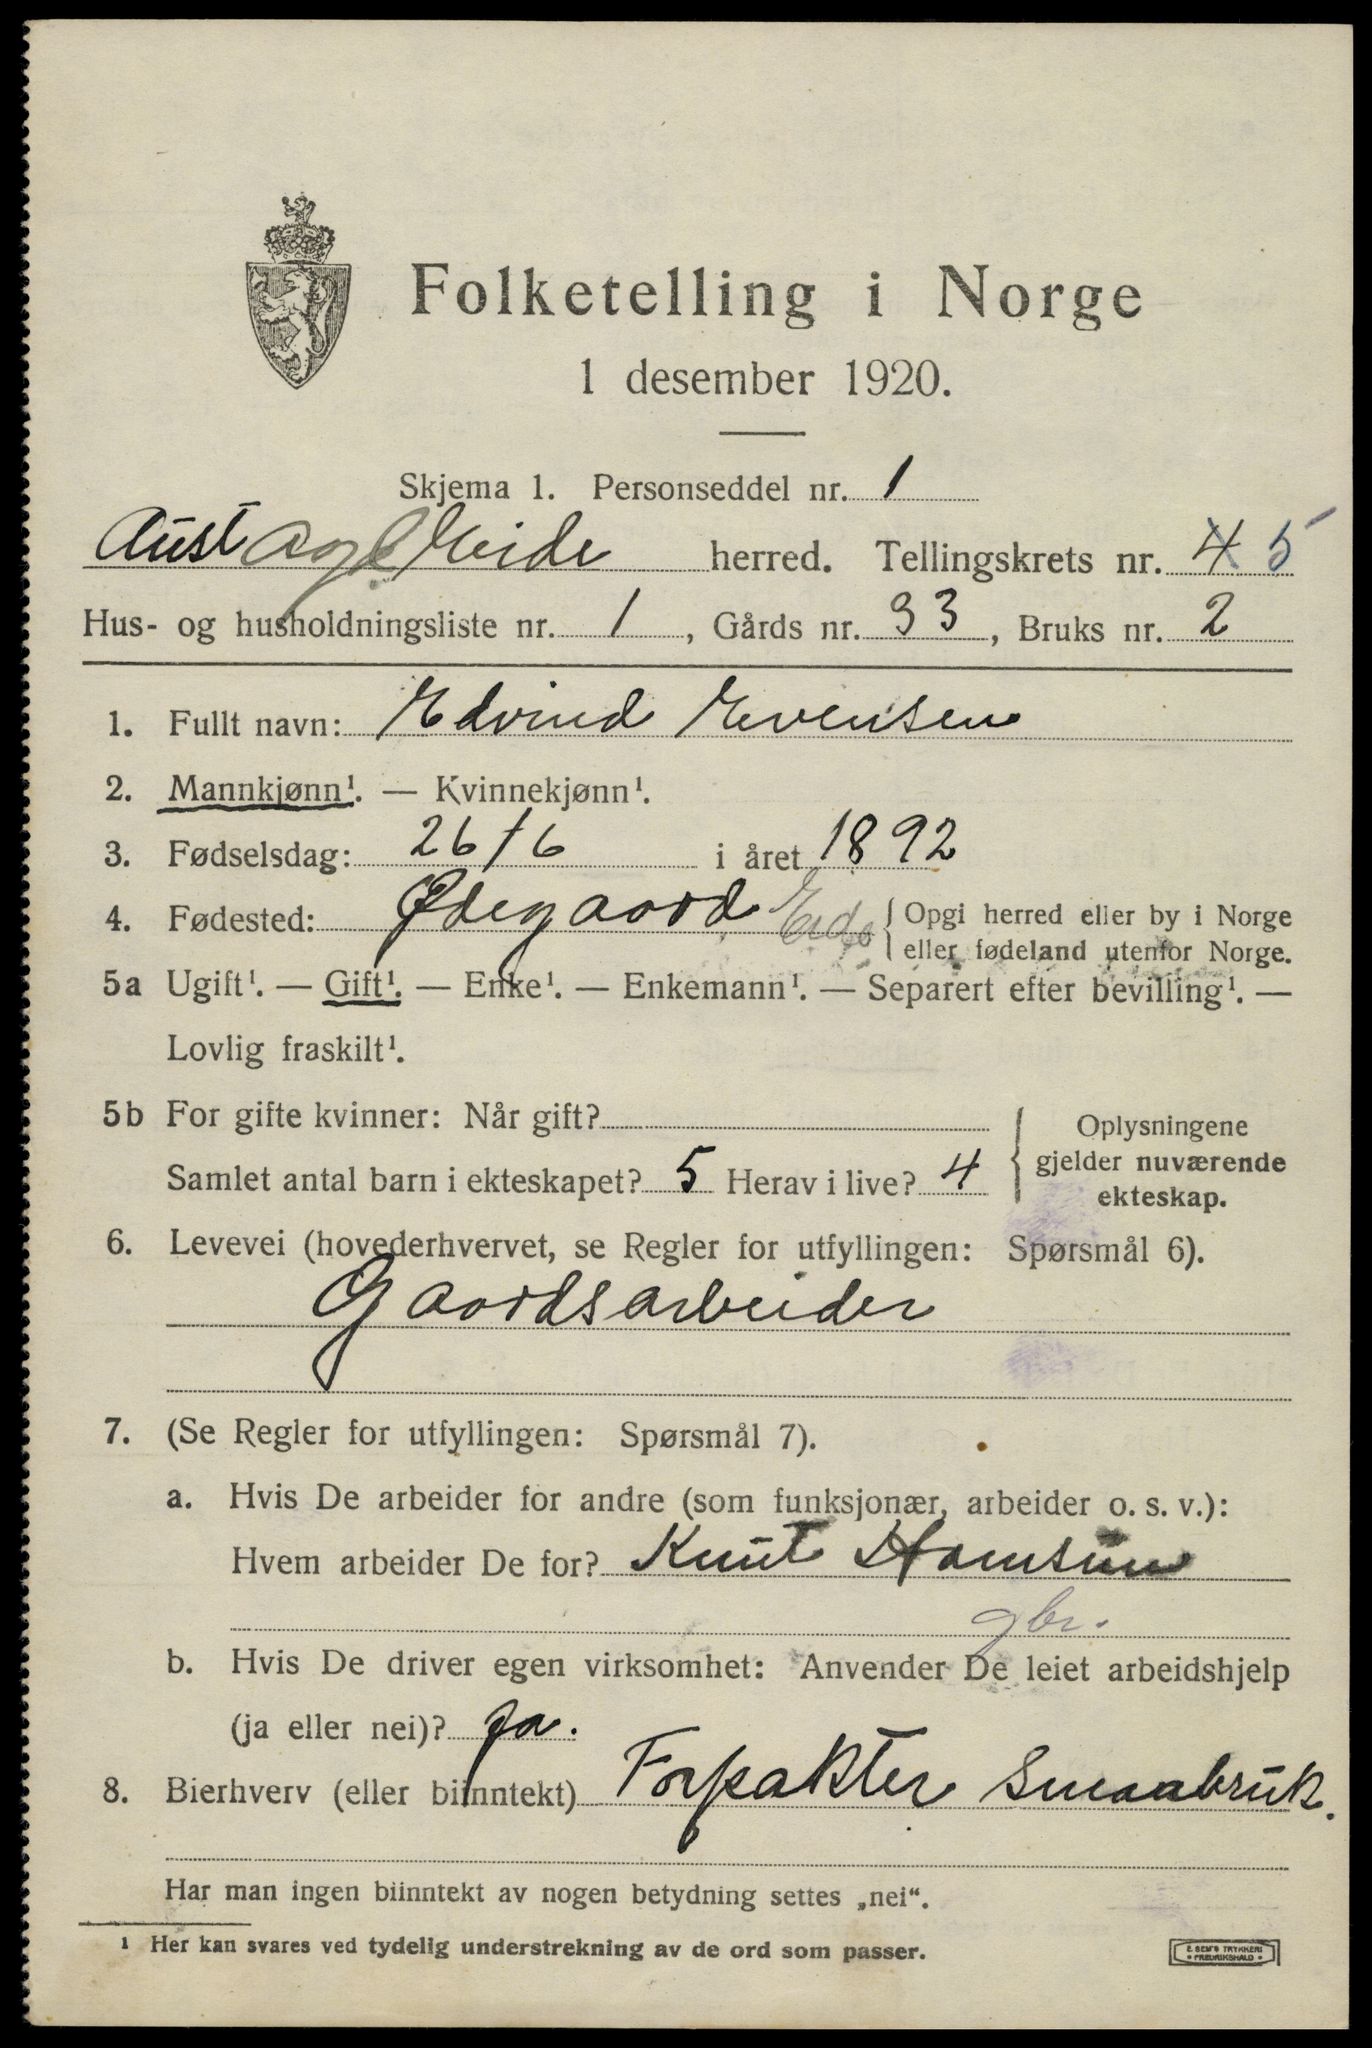 Folketelling i Norge
1 desember 1920.
Skjema 1. Personseddel nr. 1
Aust Agd Eide herred. Tellingskrets nr. 4 5
Hus- og husholdningsliste nr. 1, Gårds nr. 33, Bruks nr. 2
1. Fullt navn: Edvind Evensen
2. Mannkjønn¹. — Kvinnekjønn¹.
3. Fødselsdag: 26/6 i året 1892
4. Fødested: Ødegaard Eide { Opgi herred eller by i Norge
eller fødeland utenfor Norge.
5a Ugift¹. — Gift¹. — Enke¹. — Enkemann¹. — Separert efter bevilling¹. —
Lovlig fraskilt¹.
5b For gifte kvinner: Når gift?
Samlet antal barn i ekteskapet? 5 Herav i live? 4
Oplysningene
gjelder nuværende
ekteskap.
6. Levevei (hovederhvervet, se Regler for utfyllingen: Spørsmål 6).
Gaardsarbeider
7. (Se Regler for utfyllingen: Spørsmål 7).
a. Hvis De arbeider for andre (som funksjonær, arbeider o. s. v.):
Hvem arbeider De for? Knut Hamsun
gbr.
b. Hvis De driver egen virksomhet: Anvender De leiet arbeidshjelp
(ja eller nei)? ja.
8. Bierhverv (eller biinntekt) Forpakter Smaabruk.
Har man ingen biinntekt av nogen betydning settes „nei“.
¹ Her kan svares ved tydelig understrekning av de ord som passer.
E. SEM'S TRYKKERI
• FREDRIKSHALD •